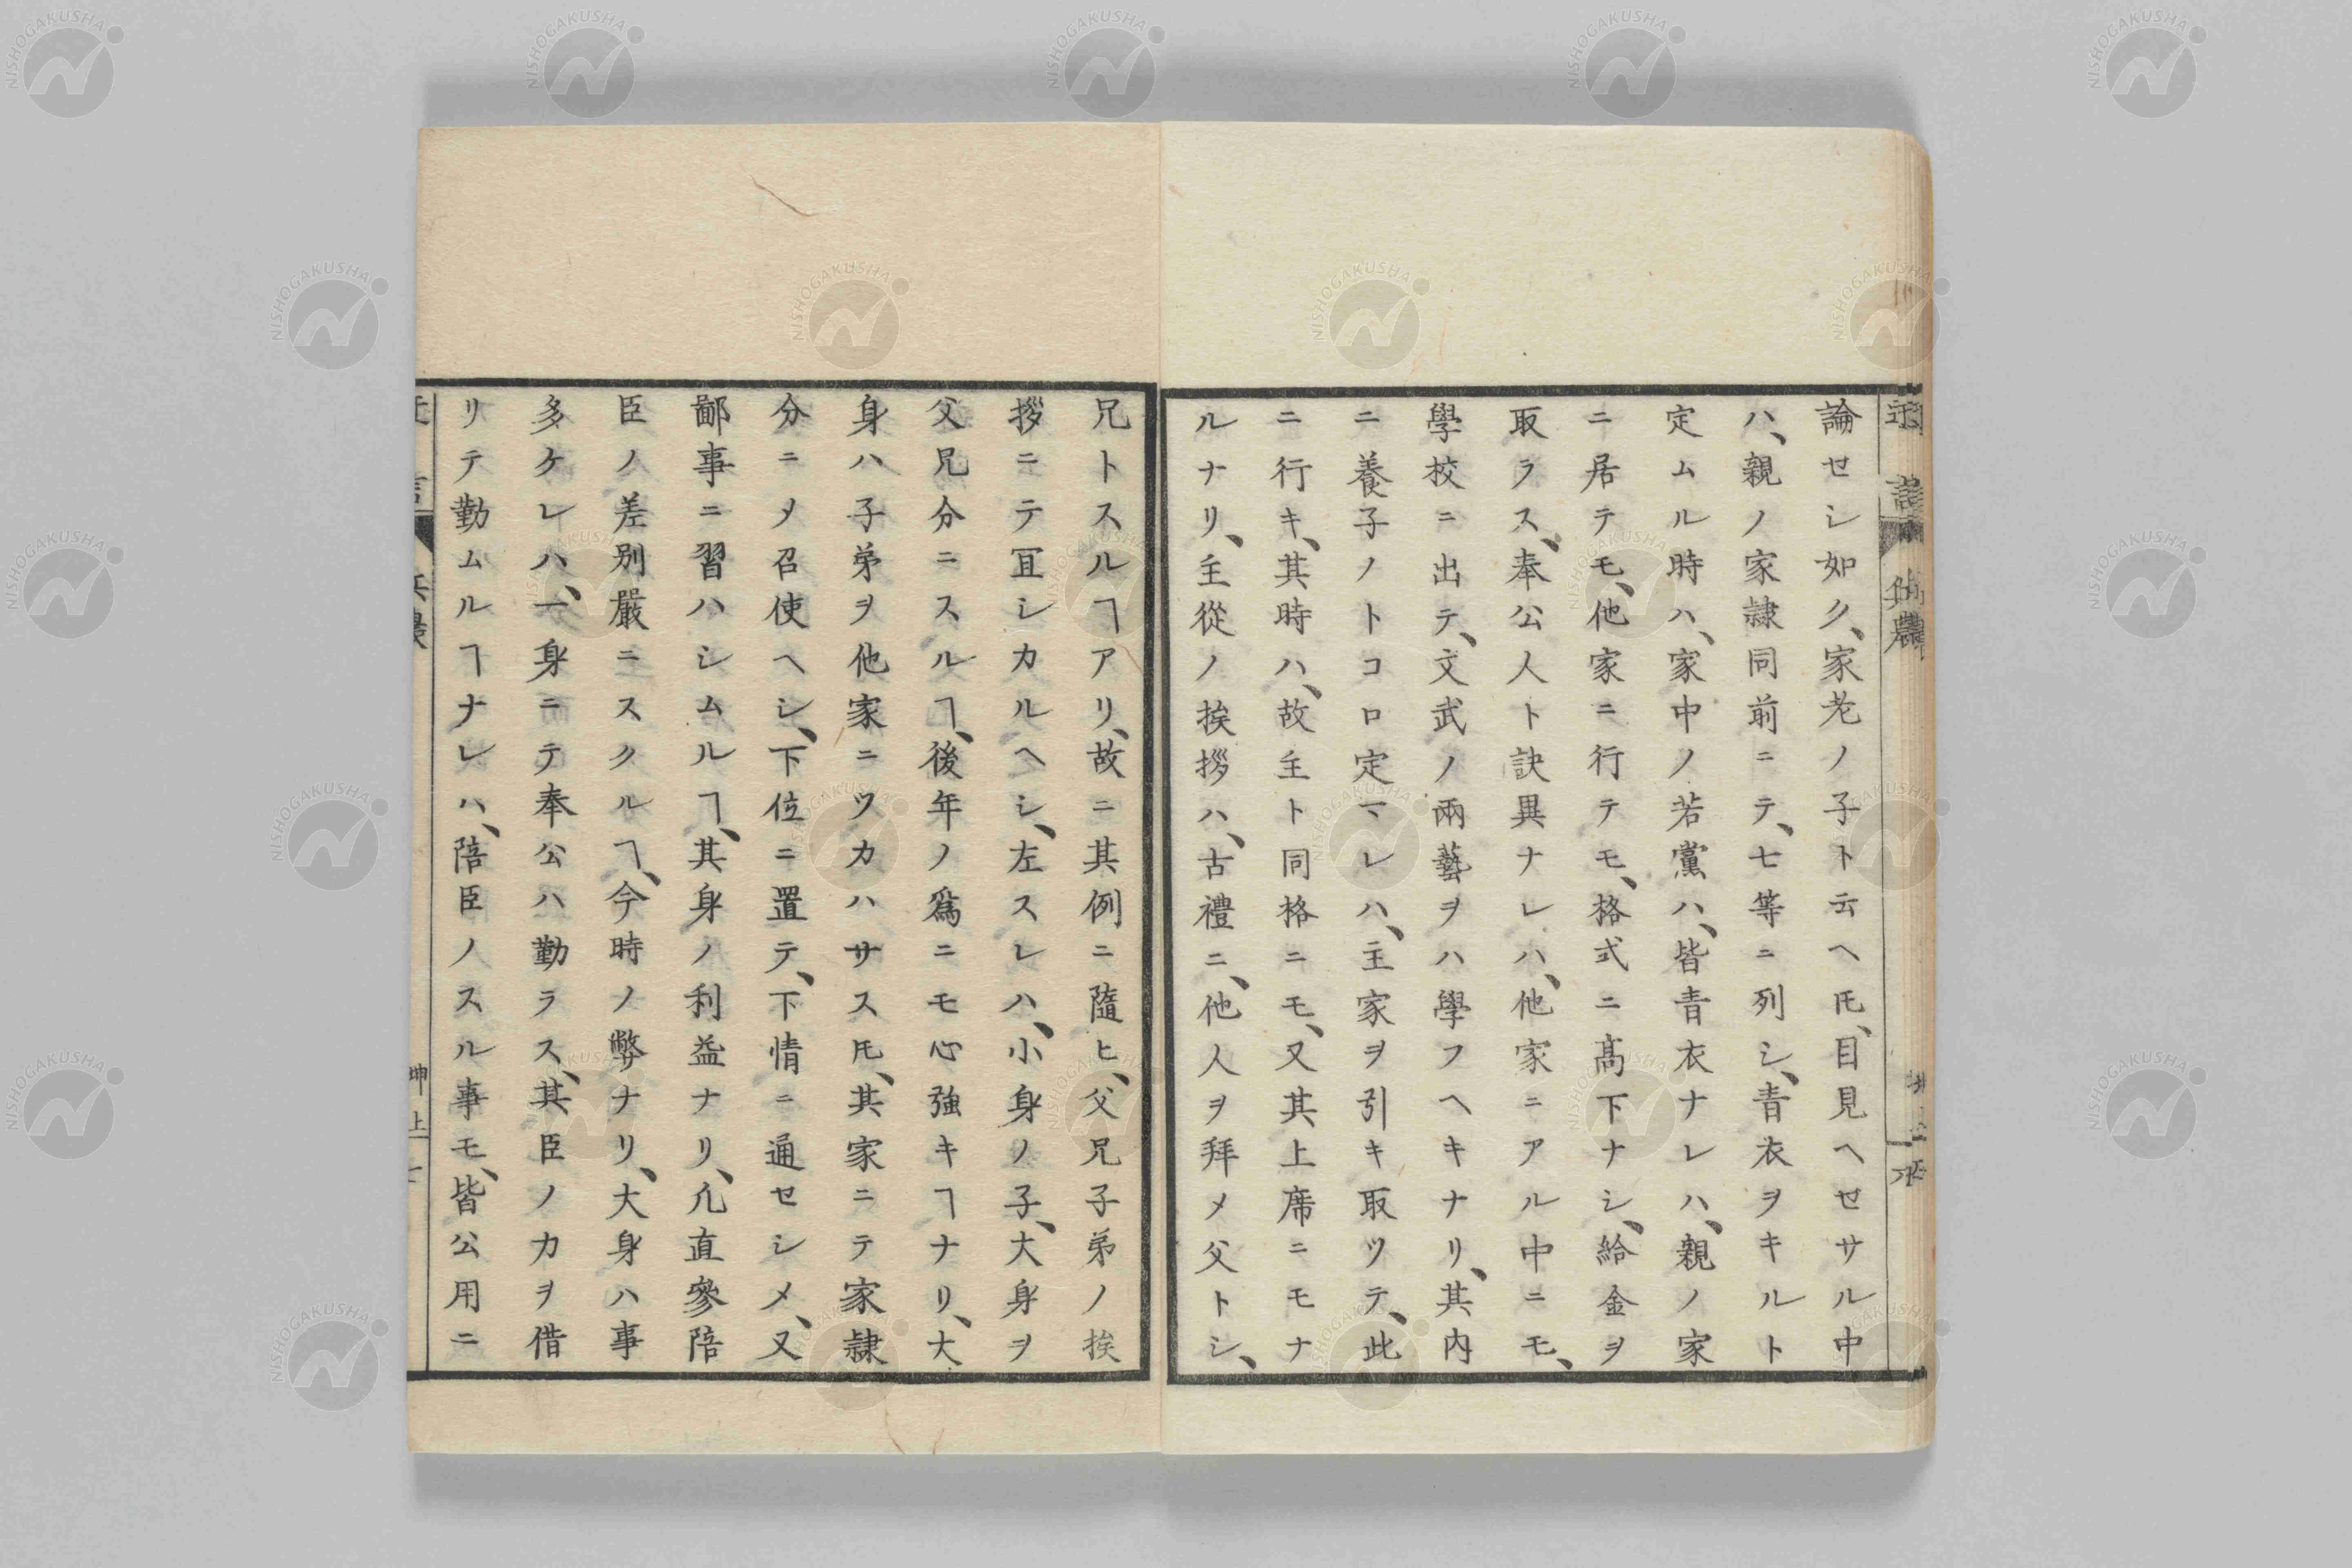 論セシ如ク、家老ノ子ト云ヘ𪜈、目見ヘセサル中
ハ、親ノ家隷同前ニテ、七等ニ列シ、青衣ヲキルト
定ムル時ハ、家中ノ若黨ハ、皆青衣ナレハ、親ノ家
ニ居テモ、他家ニ行テモ、格式ニ高下ナシ、給金ヲ
取ラス、奉公人ト訣異ナレハ、他家ニアル中ニモ、
學校ニ出テ、文武ノ兩藝ヲハ學フヘキナリ、其内
ニ養子ノトコロ定マレハ、主家ヲ引キ取ツテ、此
ニ行キ、其時ハ、故主ト同格ニモ、又其上席ニモナ
ルナリ、主從ノ挨拶ハ、古禮ニ、他人ヲ拜メ父トシ、
兄トスルヿアリ、故ニ其例ニ隨ヒ、父兄子弟ノ挨
拶ニテ冝シカルヘシ、左スレハ、小身ノ子、大身ヲ
父兄分ニスルヿ、後年ノ爲ニモ心強キヿナリ、大
身ハ子弟ヲ他家ニツカハサス𪜈、其家ニテ家隷
分ニメ召使ヘシ、下位ニ置テ、下情ニ通セシメ、又
鄙事ニ習ハシムルヿ、其身ノ利益ナリ、凢直參陪
臣ノ差別嚴ニスクルヿ、今時ノ弊ナリ、大身ハ事
多ケレハ、一身ニテ奉公ハ勤ラス、其臣ノカヲ借
リテ勤ムルヿナレハ、陪臣ノスル事モ、皆公用ニ
坤上
NISHOGAKUSHA